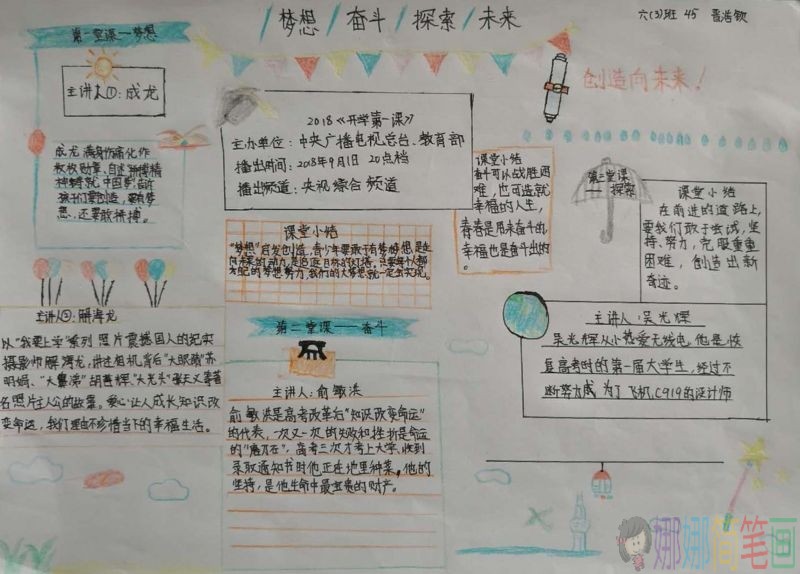 /梦想/奋斗/探索/未来
六(3)班 45
创造向未来！
第一堂课—梦想
主讲人①：成龙
成龙满身伤痛化作
孩子们要创造，要有梦
想，还要敢拼搏。
2018《开学第一课》
主办单位：中央广播电视总台、教育部
播出时间：2018年9月1日 20点档
播出频道：央视综合频道
课堂小结
"梦想"启发创造，青少年要敢于有梦想
课堂小结
奋斗可以战胜困
难，也可造就
幸福的人生，
青春是用来奋斗的，
幸福也是奋斗出的。
第三堂课
——探索
课堂小结
在前进的道路上，
要我们敢于尝试，坚
持、努力，克服重重
困难，创造出新
奇迹。
主讲人②：解海龙
从"我要上学"系列照片震撼国人的纪实
摄影师解海龙，讲述相机背后"大眼睛"苏
明娟、"大鼻涕"胡善辉、"光头"张天义等著
名照片主人公的故事。爱心让人成长，知识改
变命运，我们理由不珍惜当下的幸福生活。
第二堂课——奋斗
主讲人：俞敏洪
俞敏洪是高考改革后"知识改变命运"
的代表，一次又一次的失败和挫折是命运
的"磨刀石"，高考三次才考上大学，收到
录取通知书时他正在地里种菜。他的
坚持，是他生命中最宝贵的财产。
主讲人：吴光辉
吴光辉从小热爱无线电，他是恢
复高考时的第一届大学生，经过不
断努力成为了飞机C919的设计师
娜娜简笔画